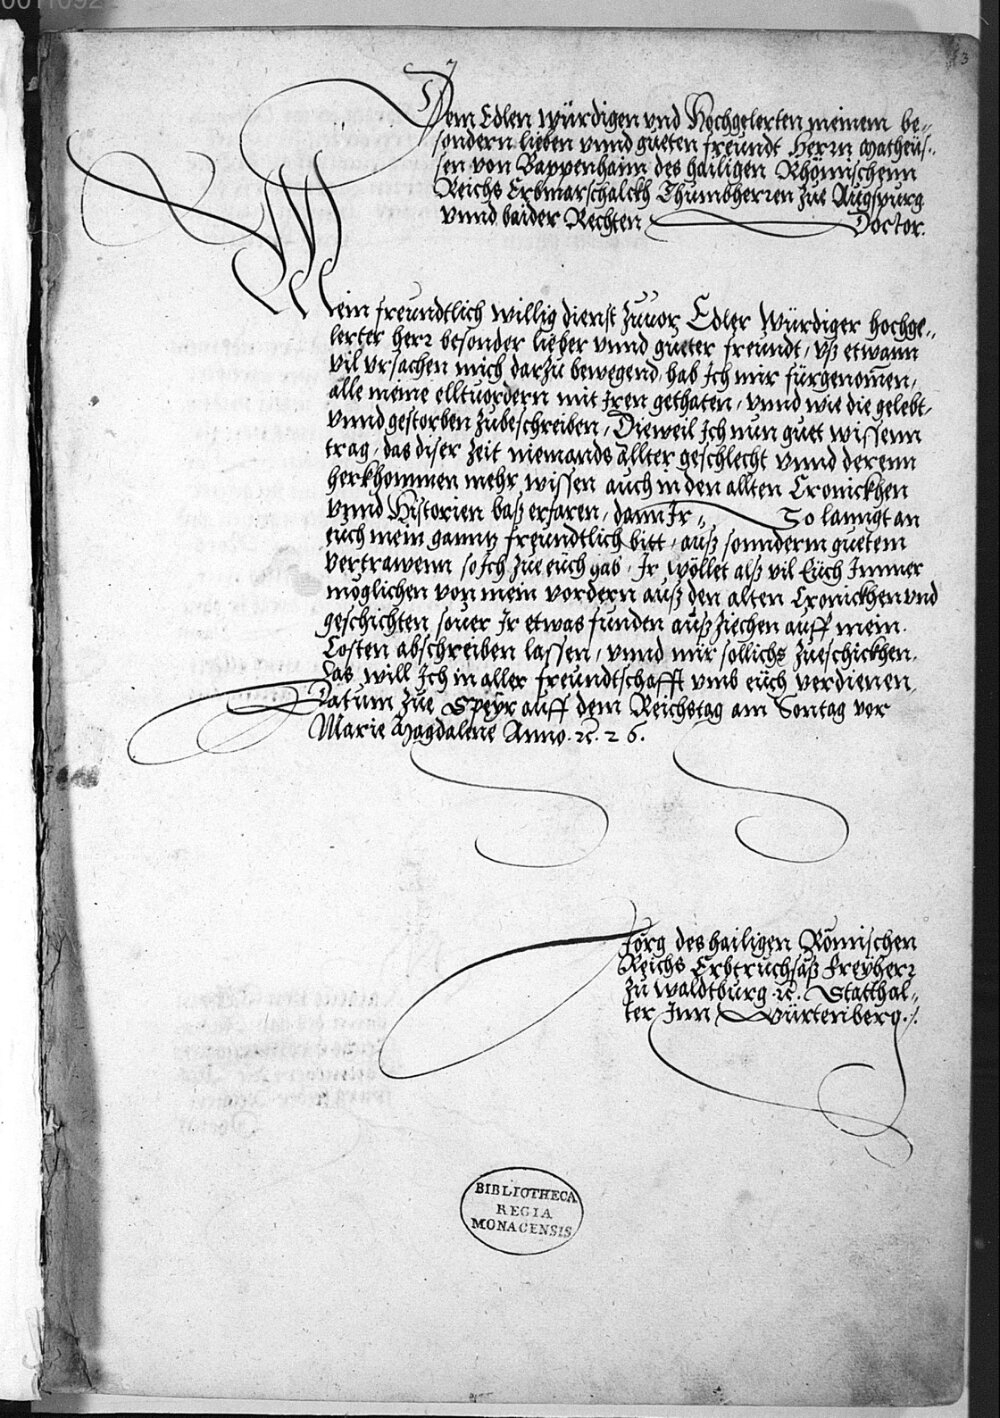 0011092
3
Dem Edlen würdigen vnd Hochgelerten meinem be„
sondern lieben vnnd güeten freündt Herrn Matheus„
sen von Bappenhaim des hailigen Rhömischenn
Reichs Erbmarschalckh Thumbherren züe Augspurg
vnnd baider Rechten Doctor.
Mein freündtlich willig dienst zuuor, Edler Würdiger hochge„
lerter herr besonder lieber vnnd güeter freündt, vß etwann
vil vrsachen mich darzü bewegend, hab Ich mir fürgenom̄en,
alle meine elltuordern mit Iren gethaten, vnnd wie die gelebt,
vnnd gestorben zübeschreiben, Dieweil Ich nun güet wissenn
trag, das diser zeit niemands ällter geschlecht vnnd derenn
herkhommen mehr wissen auch in den allten Cronickhen
vnnd Historien baß erfaren, dann Ir, So lanngt an
eüch mein ganntz freündtlich bitt, auß sonnderm güetem
vertrawenn so Ich züe eüch hab, Ir wöllet alß vil Eüch Immer
möglichen von mein vordern auß den alten Cronickhen vnd
geschichten souer Ir etwas funden außziechen auff mein
Costen abschreiben lassen, vnnd mir sollichs züeschickhen,
Das will Ich in aller freündtschafft vmb eüch verdienen,
Datum züe Speyr auff dem Reichstag am Sontag vor
Marie Magdalene Anno. ꝛc. 26.
Jörg des hailigen Römischen
Reichs Erbtruchsäß Freyherr
zü Waldtburg ꝛc. Statthal„
ter Inn Würtenberg ./.
BIBLIOTHECA
REGIA
MONACENSIS